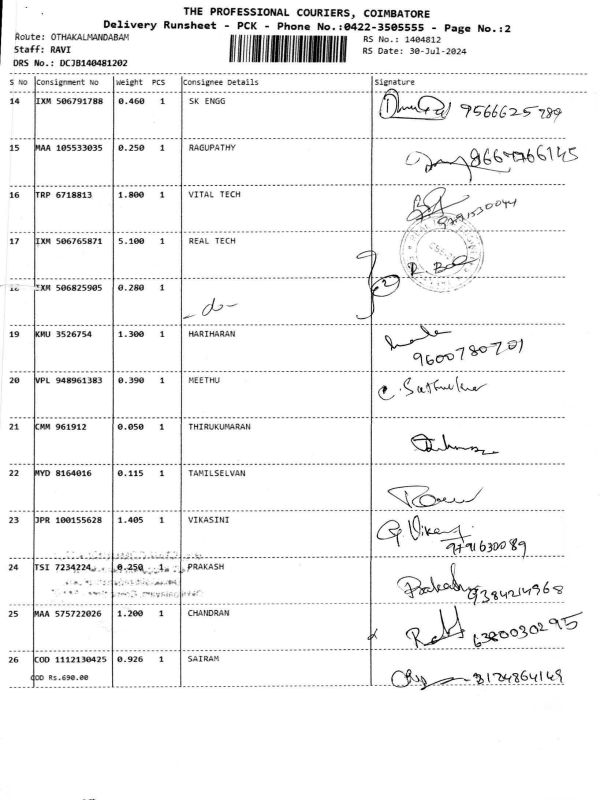 THE PROFESSIONAL COURIERS, COIMBATORE
Delivery Runsheet - PCK - Phone No.:0422-3505555 - Page No.:2
Route: OTHAKALMANDABAM RS No.: 1404812
Staff: RAVI RS Date: 30-Jul-2024
DRS No.: DCJB140481202
S No Consignment No Weight PCS Consignee Details Signature
14 IXM 506791788 0.460 1 SK ENGG 9566625789
15 MAA 105533035 0.250 1 RAGUPATHY
16 TRP 6718813 1.800 1 VITAL TECH
17 IXM 506765871 5.100 1 REAL TECH
18 IXM 506825905 0.280 1 - do -
19 KMU 3526754 1.300 1 HARIHARAN
9600780701
20 VPL 948961383 0.390 1 MEETHU
21 CMM 961912 0.050 1 THIRUKUMARAN
22 MYD 8164016 0.115 1 TAMILSELVAN
23 JPR 100155628 1.405 1 VIKASINI
9791630089
24 TSI 7234224 0.250 1 PRAKASH 9384214968
25 MAA 575722026 1.200 1 CHANDRAN 6380030295
26 COD 1112130425 0.926 1 SAIRAM
COD Rs.690.00